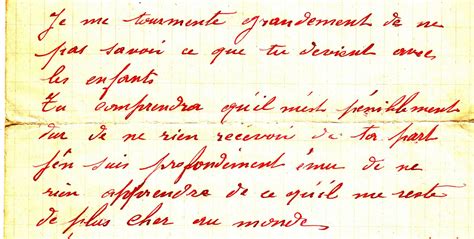 Je me tourmente grandement de ne
pas savoir ce que tu devient avec
les enfants
Tu comprendra qu'il m'est péniblement
dur de ne rien recevoir de ta part
j'en suis profondément ému de ne
rien apprendre de ce qu'il me reste
de plus cher au monde,